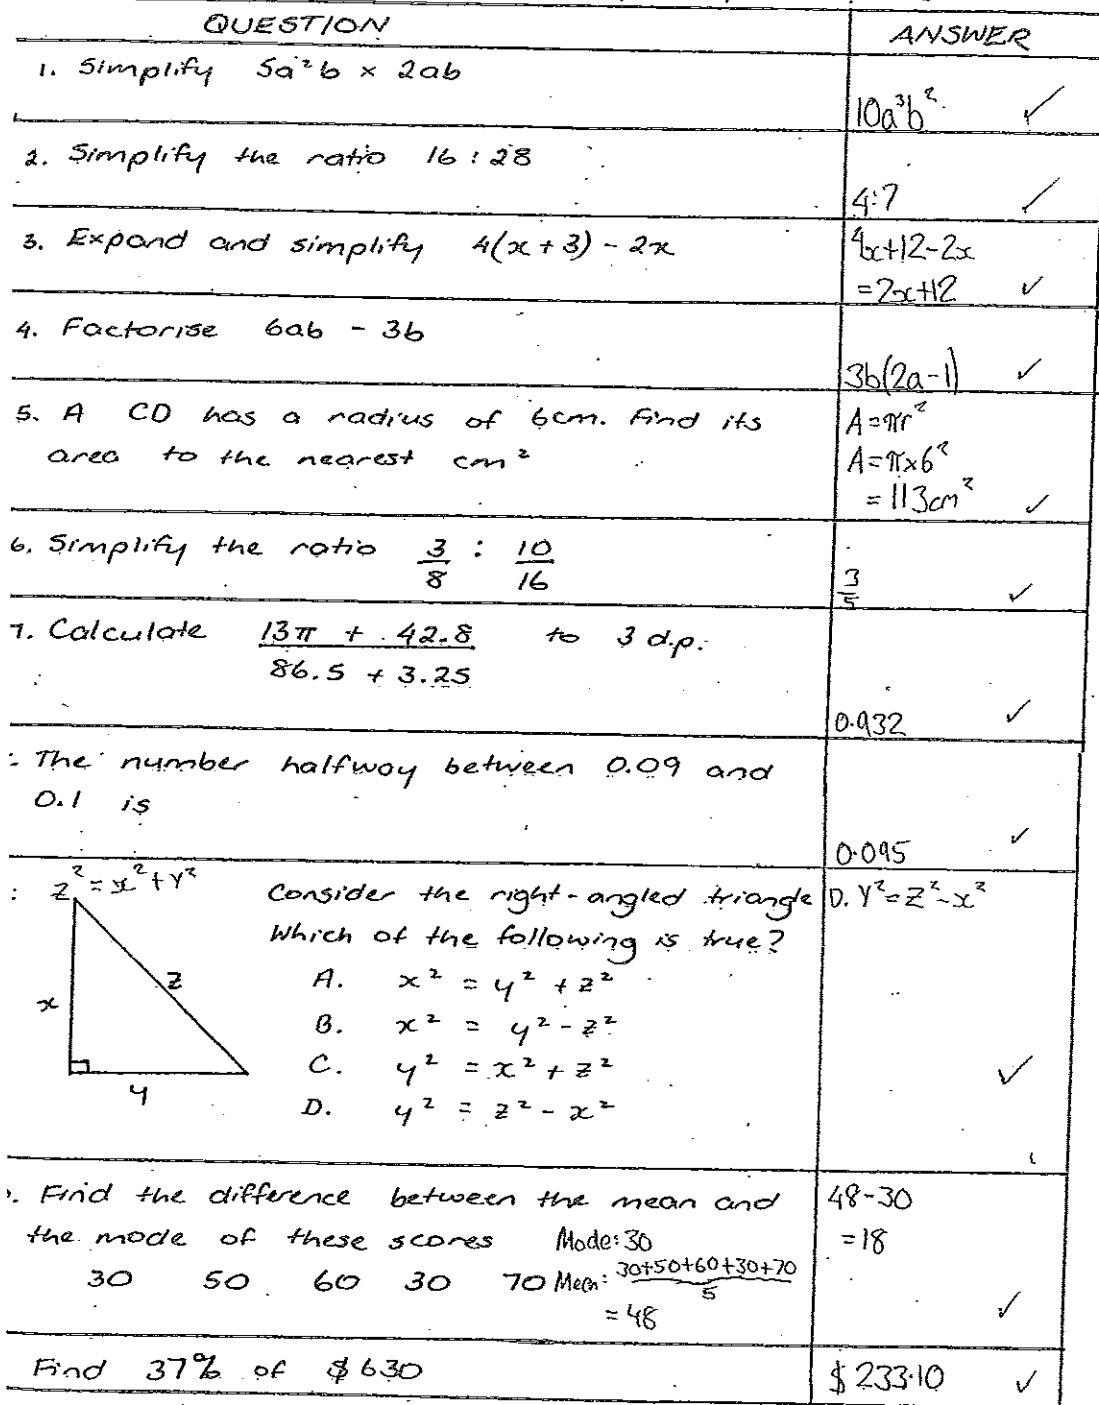 QUESTION ANSWER
1. Simplify 5a²b × 2ab
10a³b² ✓
2. Simplify the ratio 16 : 28
4:7 ✓
3. Expand and simplify 4(x + 3) - 2x
4x+12-2x
=2x+12 ✓
4. Factorise 6ab - 3b
3b(2a-1) ✓
5. A CD has a radius of 6cm. Find its
area to the nearest cm²
A=πr²
A=π×6²
=113cm² ✓
6. Simplify the ratio 3/8 : 10/16
3/5 ✓
7. Calculate (13π + 42.8)/(86.5 + 3.25) to 3 d.p.
0.932 ✓
: The number halfway between 0.09 and
0.1 is
0.095 ✓
: z²=x²+y²
x
z
y
Consider the right-angled triangle
Which of the following is true?
A. x² = y² + z²
B. x² = y² - z²
C. y² = x² + z²
D. y² = z² - x²
D. Y²=Z²-x²
✓
. Find the difference between the mean and
the mode of these scores Mode: 30
30 50 60 30 70 Mean: (30+50+60+30+70)/5
= 48
48-30
=18
✓
Find 37% of $630
$233.10 ✓